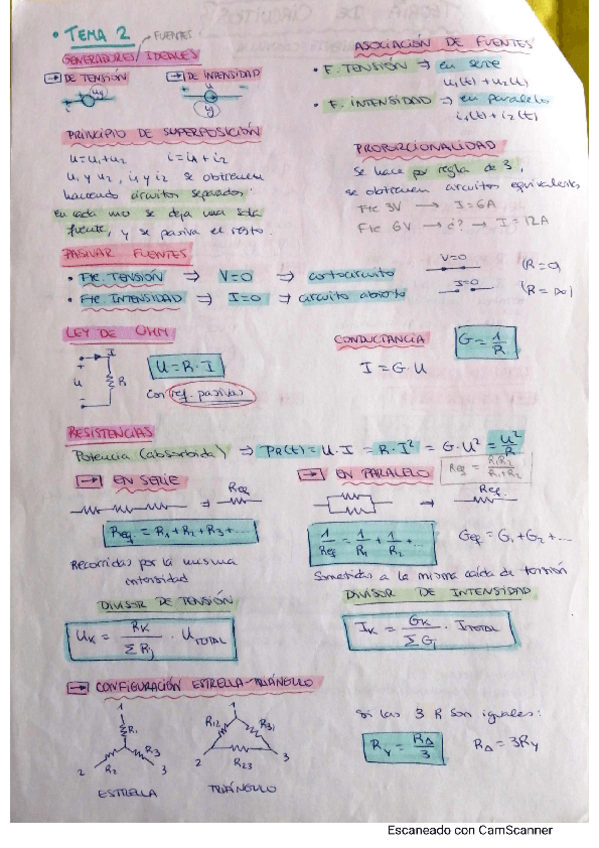 • TEMA 2 → FUENTES
GENERADORES IDEALES
→ DE TENSIÓN → DE INTENSIDAD
ASOCIACIÓN DE FUENTES
• F. TENSIÓN ⇒ en serie
u₁(t) + u₂(t)
• F. INTENSIDAD ⇒ en paralelo
i₁(t) + i₂(t)
PRINCIPIO DE SUPERPOSICIÓN
u = u₁ + u₂ i = i₁ + i₂
u₁ y u₂, i₁ y i₂ se obtienen
haciendo circuitos separados:
en cada uno se deja una sola
fuente, y se pasiva el resto.
PROPORCIONALIDAD
Se hace por regla de 3,
se obtienen circuitos equivalentes
Fte 3V → I = 6A
Fte 6V → ¿? → I = 12A
PASIVAR FUENTES
• Fte. TENSIÓN ⇒ V=0 ⇒ cortocircuito V=0 (R=0)
• Fte INTENSIDAD ⇒ I=0 ⇒ circuito abierto I=0 (R=∞)
LEY DE OHM
I
+
u R
-
U = R·I
con ref. pasivas
CONDUCTANCIA G = 1/R
I = G·U
RESISTENCIAS
Potencia (absorbida) ⇒ PR(t) = U·I = R·I² = G·U² = U²/R
→ EN SERIE
Req
Req. = R₁ + R₂ + R₃ + ...
Recorridas por la misma
intensidad
→ EN PARALELO
Req = R₁R₂/R₁+R₂
Req.
1/Req = 1/R₁ + 1/R₂ + ... Geq = G₁ + G₂ + ...
Sometidas a la misma caída de tensión
DIVISOR DE TENSIÓN
UK = RK/ΣRj · UTOTAL
DIVISOR DE INTENSIDAD
IK = GK/ΣGj · ITOTAL
→ CONFIGURACIÓN ESTRELLA-TRIÁNGULO
1 R₁ R₂ R₃ 2 3
ESTRELLA
1 R₁₂ R₃₁ R₂₃ 2 3
TRIÁNGULO
Si las 3 R son iguales:
RY = RΔ/3 RΔ = 3RY
Escaneado con CamScanner